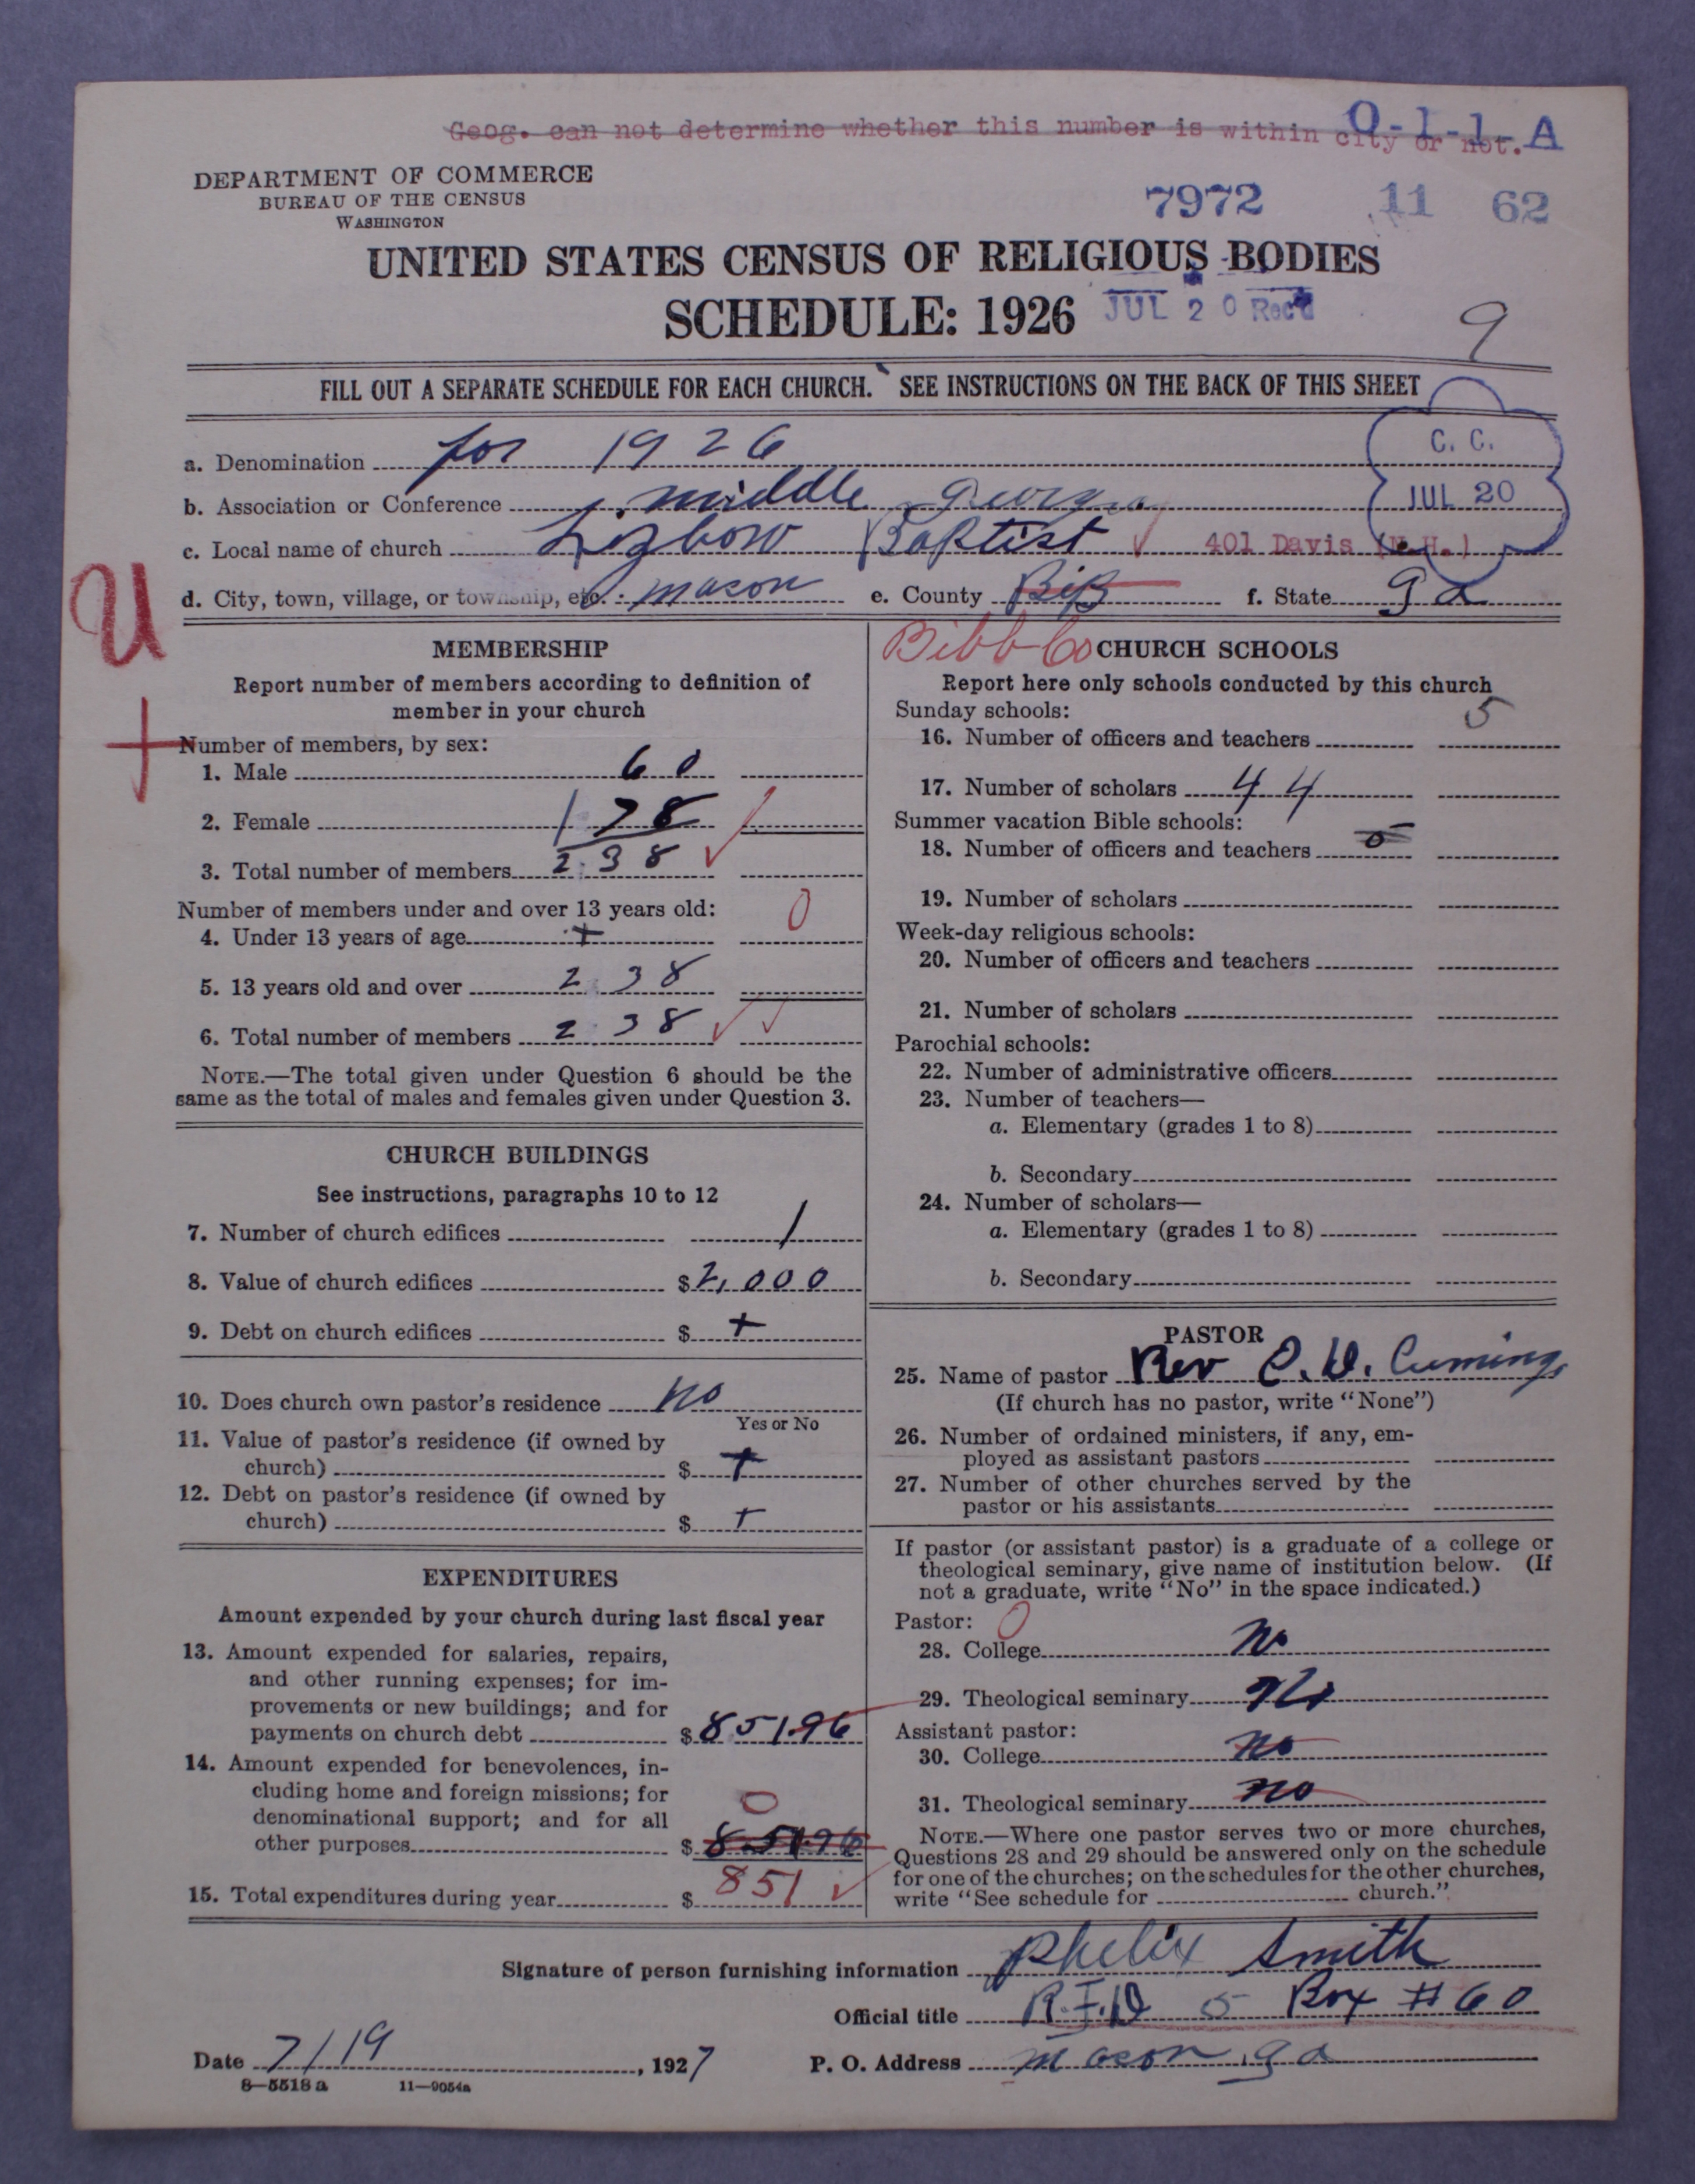 Geog. can not determine whether this number is within city or not.
0-1-1-A
DEPARTMENT OF COMMERCE
BUREAU OF THE CENSUS
WASHINGTON
7972 11 62
UNITED STATES CENSUS OF RELIGIOUS BODIES
SCHEDULE: 1926
JUL 20 Rec'd
9
FILL OUT A SEPARATE SCHEDULE FOR EACH CHURCH. SEE INSTRUCTIONS ON THE BACK OF THIS SHEET
C. C.
JUL 20
a. Denomination for 1926
b. Association or Conference middle Georgia
c. Local name of church Lizbow Baptist 401 Davis (N.H.)
d. City, town, village, or township, etc. mason e. County Bib f. State Ga
U
Bibb Co
MEMBERSHIP
Report number of members according to definition of
member in your church
Number of members, by sex:
1. Male 60
2. Female 178
3. Total number of members 238
Number of members under and over 13 years old: 0
4. Under 13 years of age +
5. 13 years old and over 238
6. Total number of members 238
NOTE.—The total given under Question 6 should be the
same as the total of males and females given under Question 3.
CHURCH BUILDINGS
See instructions, paragraphs 10 to 12
7. Number of church edifices 1
8. Value of church edifices $2,000
9. Debt on church edifices $ +
10. Does church own pastor's residence no
Yes or No
11. Value of pastor's residence (if owned by
church) $ +
12. Debt on pastor's residence (if owned by
church) $ +
EXPENDITURES
Amount expended by your church during last fiscal year
13. Amount expended for salaries, repairs,
and other running expenses; for im-
provements or new buildings; and for
payments on church debt $851.96
14. Amount expended for benevolences, in-
cluding home and foreign missions; for
denominational support; and for all 0
other purposes $851.96
15. Total expenditures during year $851
CHURCH SCHOOLS
Report here only schools conducted by this church
Sunday schools:
16. Number of officers and teachers 5
17. Number of scholars 44
Summer vacation Bible schools:
18. Number of officers and teachers 5
19. Number of scholars
Week-day religious schools:
20. Number of officers and teachers
21. Number of scholars
Parochial schools:
22. Number of administrative officers
23. Number of teachers—
a. Elementary (grades 1 to 8)
b. Secondary
24. Number of scholars—
a. Elementary (grades 1 to 8)
b. Secondary
PASTOR
25. Name of pastor Rev C. D. Cumings
(If church has no pastor, write "None")
26. Number of ordained ministers, if any, em-
ployed as assistant pastors
27. Number of other churches served by the
pastor or his assistants
If pastor (or assistant pastor) is a graduate of a college or
theological seminary, give name of institution below. (If
not a graduate, write "No" in the space indicated.)
Pastor: 0
28. College no
29. Theological seminary No
Assistant pastor:
30. College no
31. Theological seminary no
NOTE.—Where one pastor serves two or more churches,
Questions 28 and 29 should be answered only on the schedule
for one of the churches; on the schedules for the other churches,
write "See schedule for church."
Signature of person furnishing information Phelix Smith
Official title R.F.D 5 Box #60
Date 7/19, 1927 P. O. Address mason, ga
8—5518 a 11—9054a